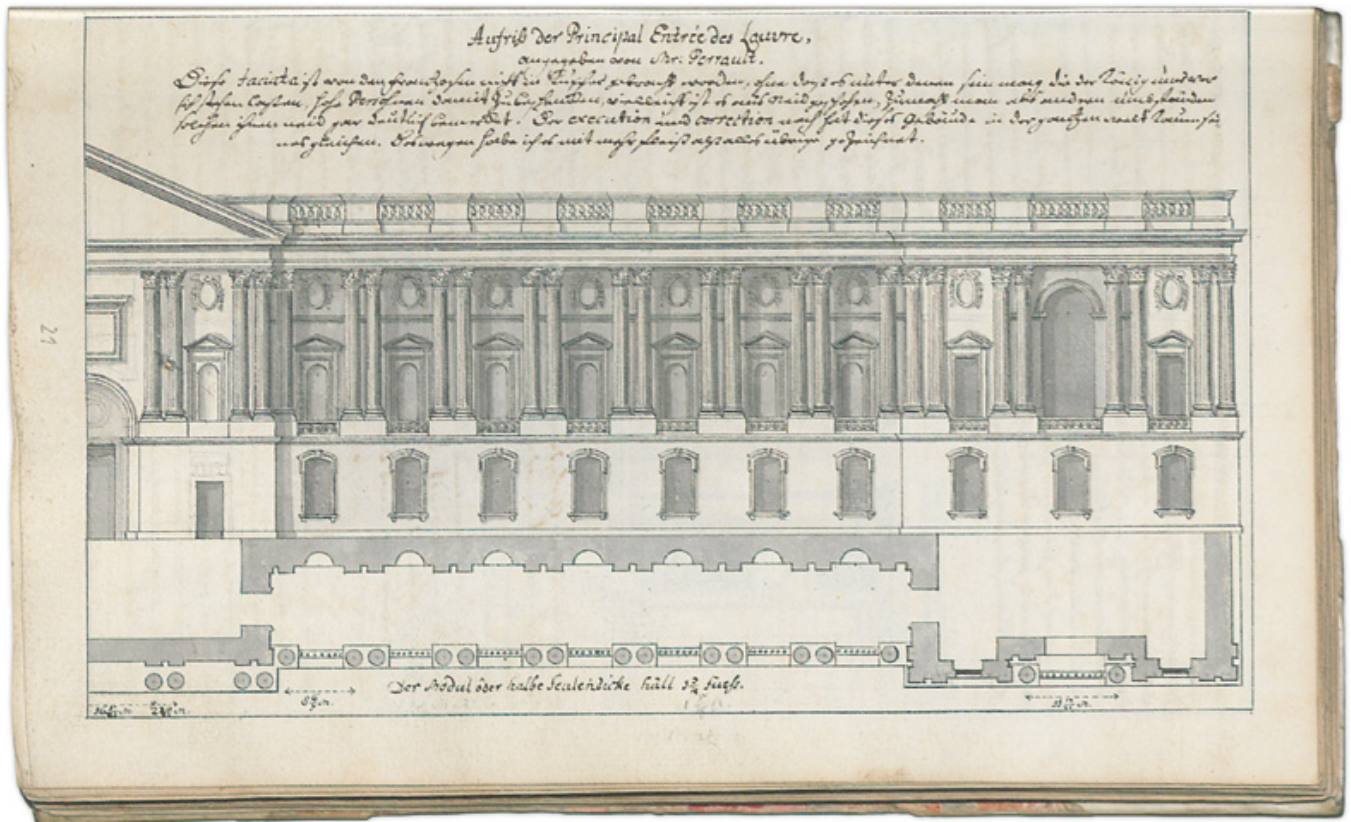 Aufriß der Principal Entrée des Louvre,
angegeben von Mr. Perrault.
Diese faciata ist von den Frantzosen nicht in Kupfer gebracht worden, ohne das es unter denen sein mag die der König
sich stehen lassen, hohe Persohnen damit zu beschencken, vielleicht ist es aus neid geschehen, zumahl man aus andern umbständen
solchen ihren neid gar deutlich bemercket. Der execution und correction nach hat dieses Gebäude in der gantzen welt kaum sei-
nes gleichen. Deswegen habe ich es mit mehr fleiß alß alles übrige gezeichnet.
21
Der Modul oder halbe Seulendicke hält fueß.